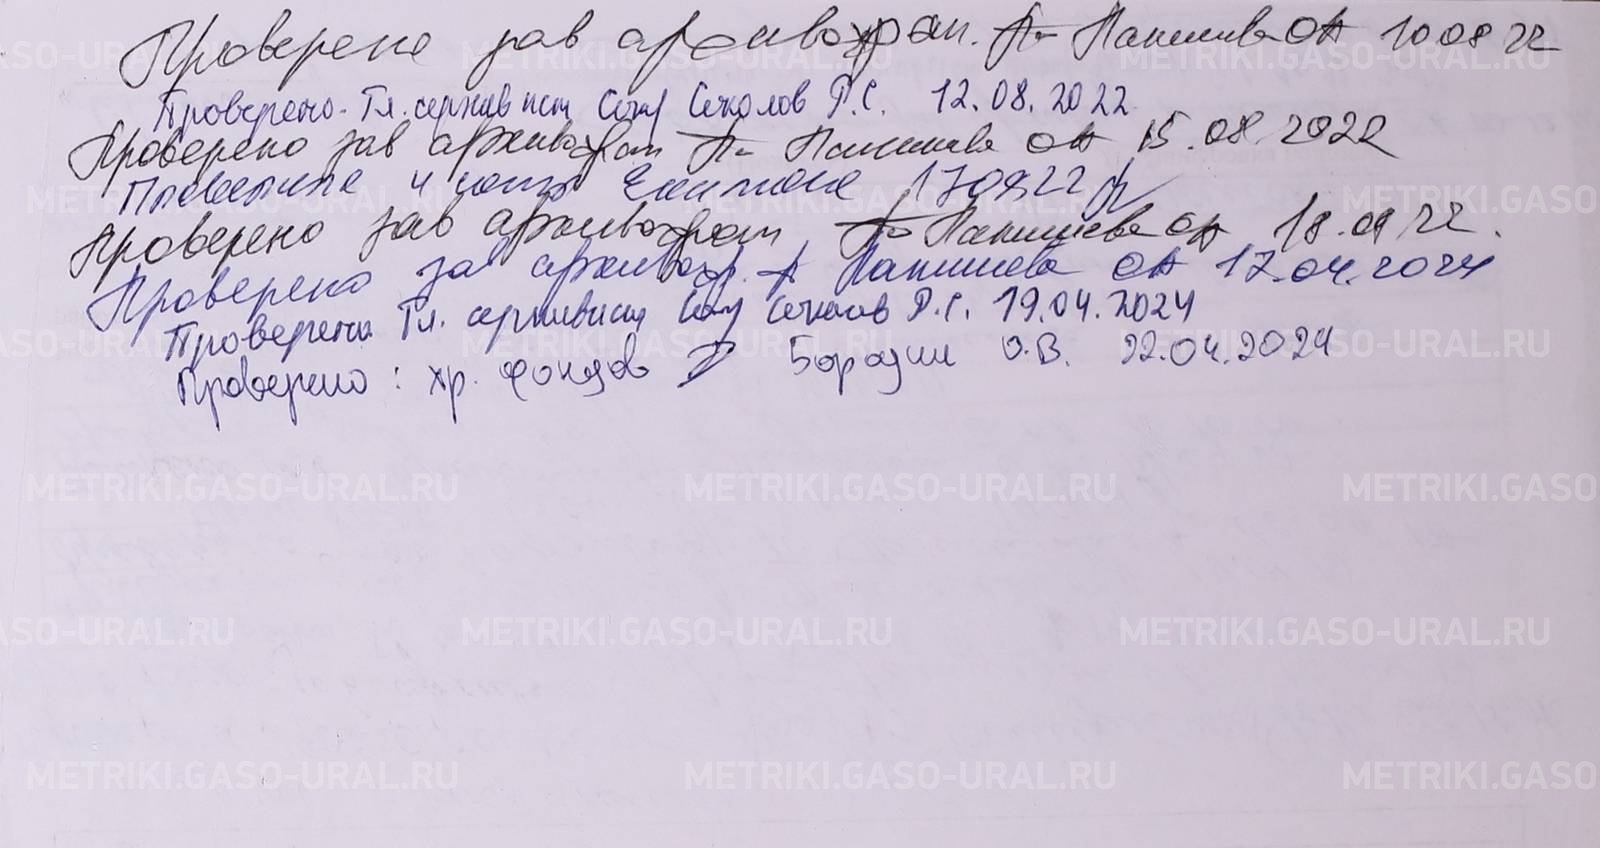 Проверено зав архивохран. Панишева ОА 10 08 22
Проверено. Гл. архивист Соколов Р.С. 12.08.2022
Проверено зав архивохран Панишева ОА 15.08.2022
17 08 22
Проверено зав архивохран Панишева ОА 18.08 22.
Проверено зав архивохр. Панишева ОА 17.04.2024
Проверено Гл. архивист Соколов Р.С. 19.04.2024
Проверено: хр. фондов Бородин О.В. 22.04.2024
METRIKI.GASO-URAL.RU